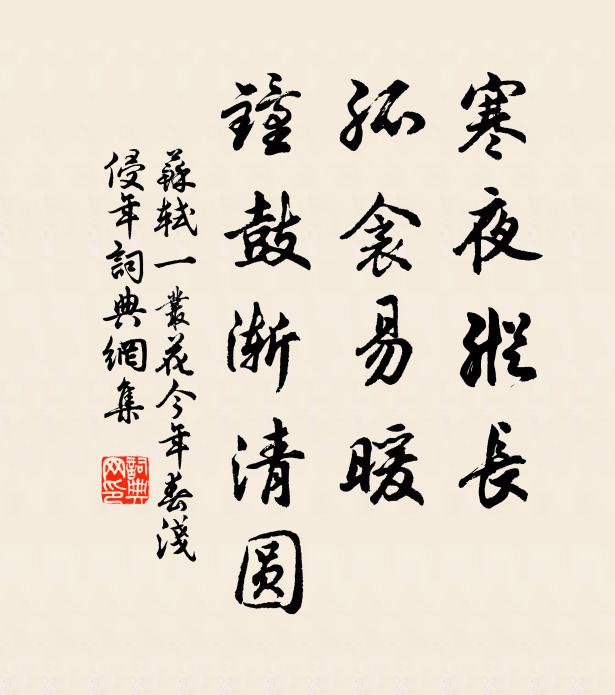 寒夜縱長
孤衾易暖
鐘鼓渐清圆
蘇軾一叢花今年春淺
侵年詞典網集
詞典网印